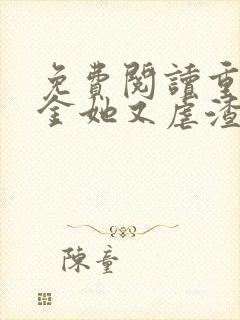 免費閱讀重
金她又虐渣
陳童